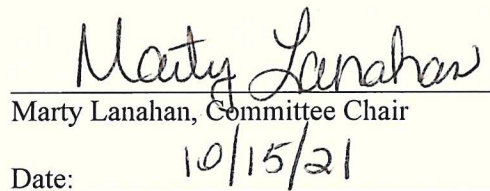 Marty Lanahan
Marty Lanahan, Committee Chair
Date: 10/15/21